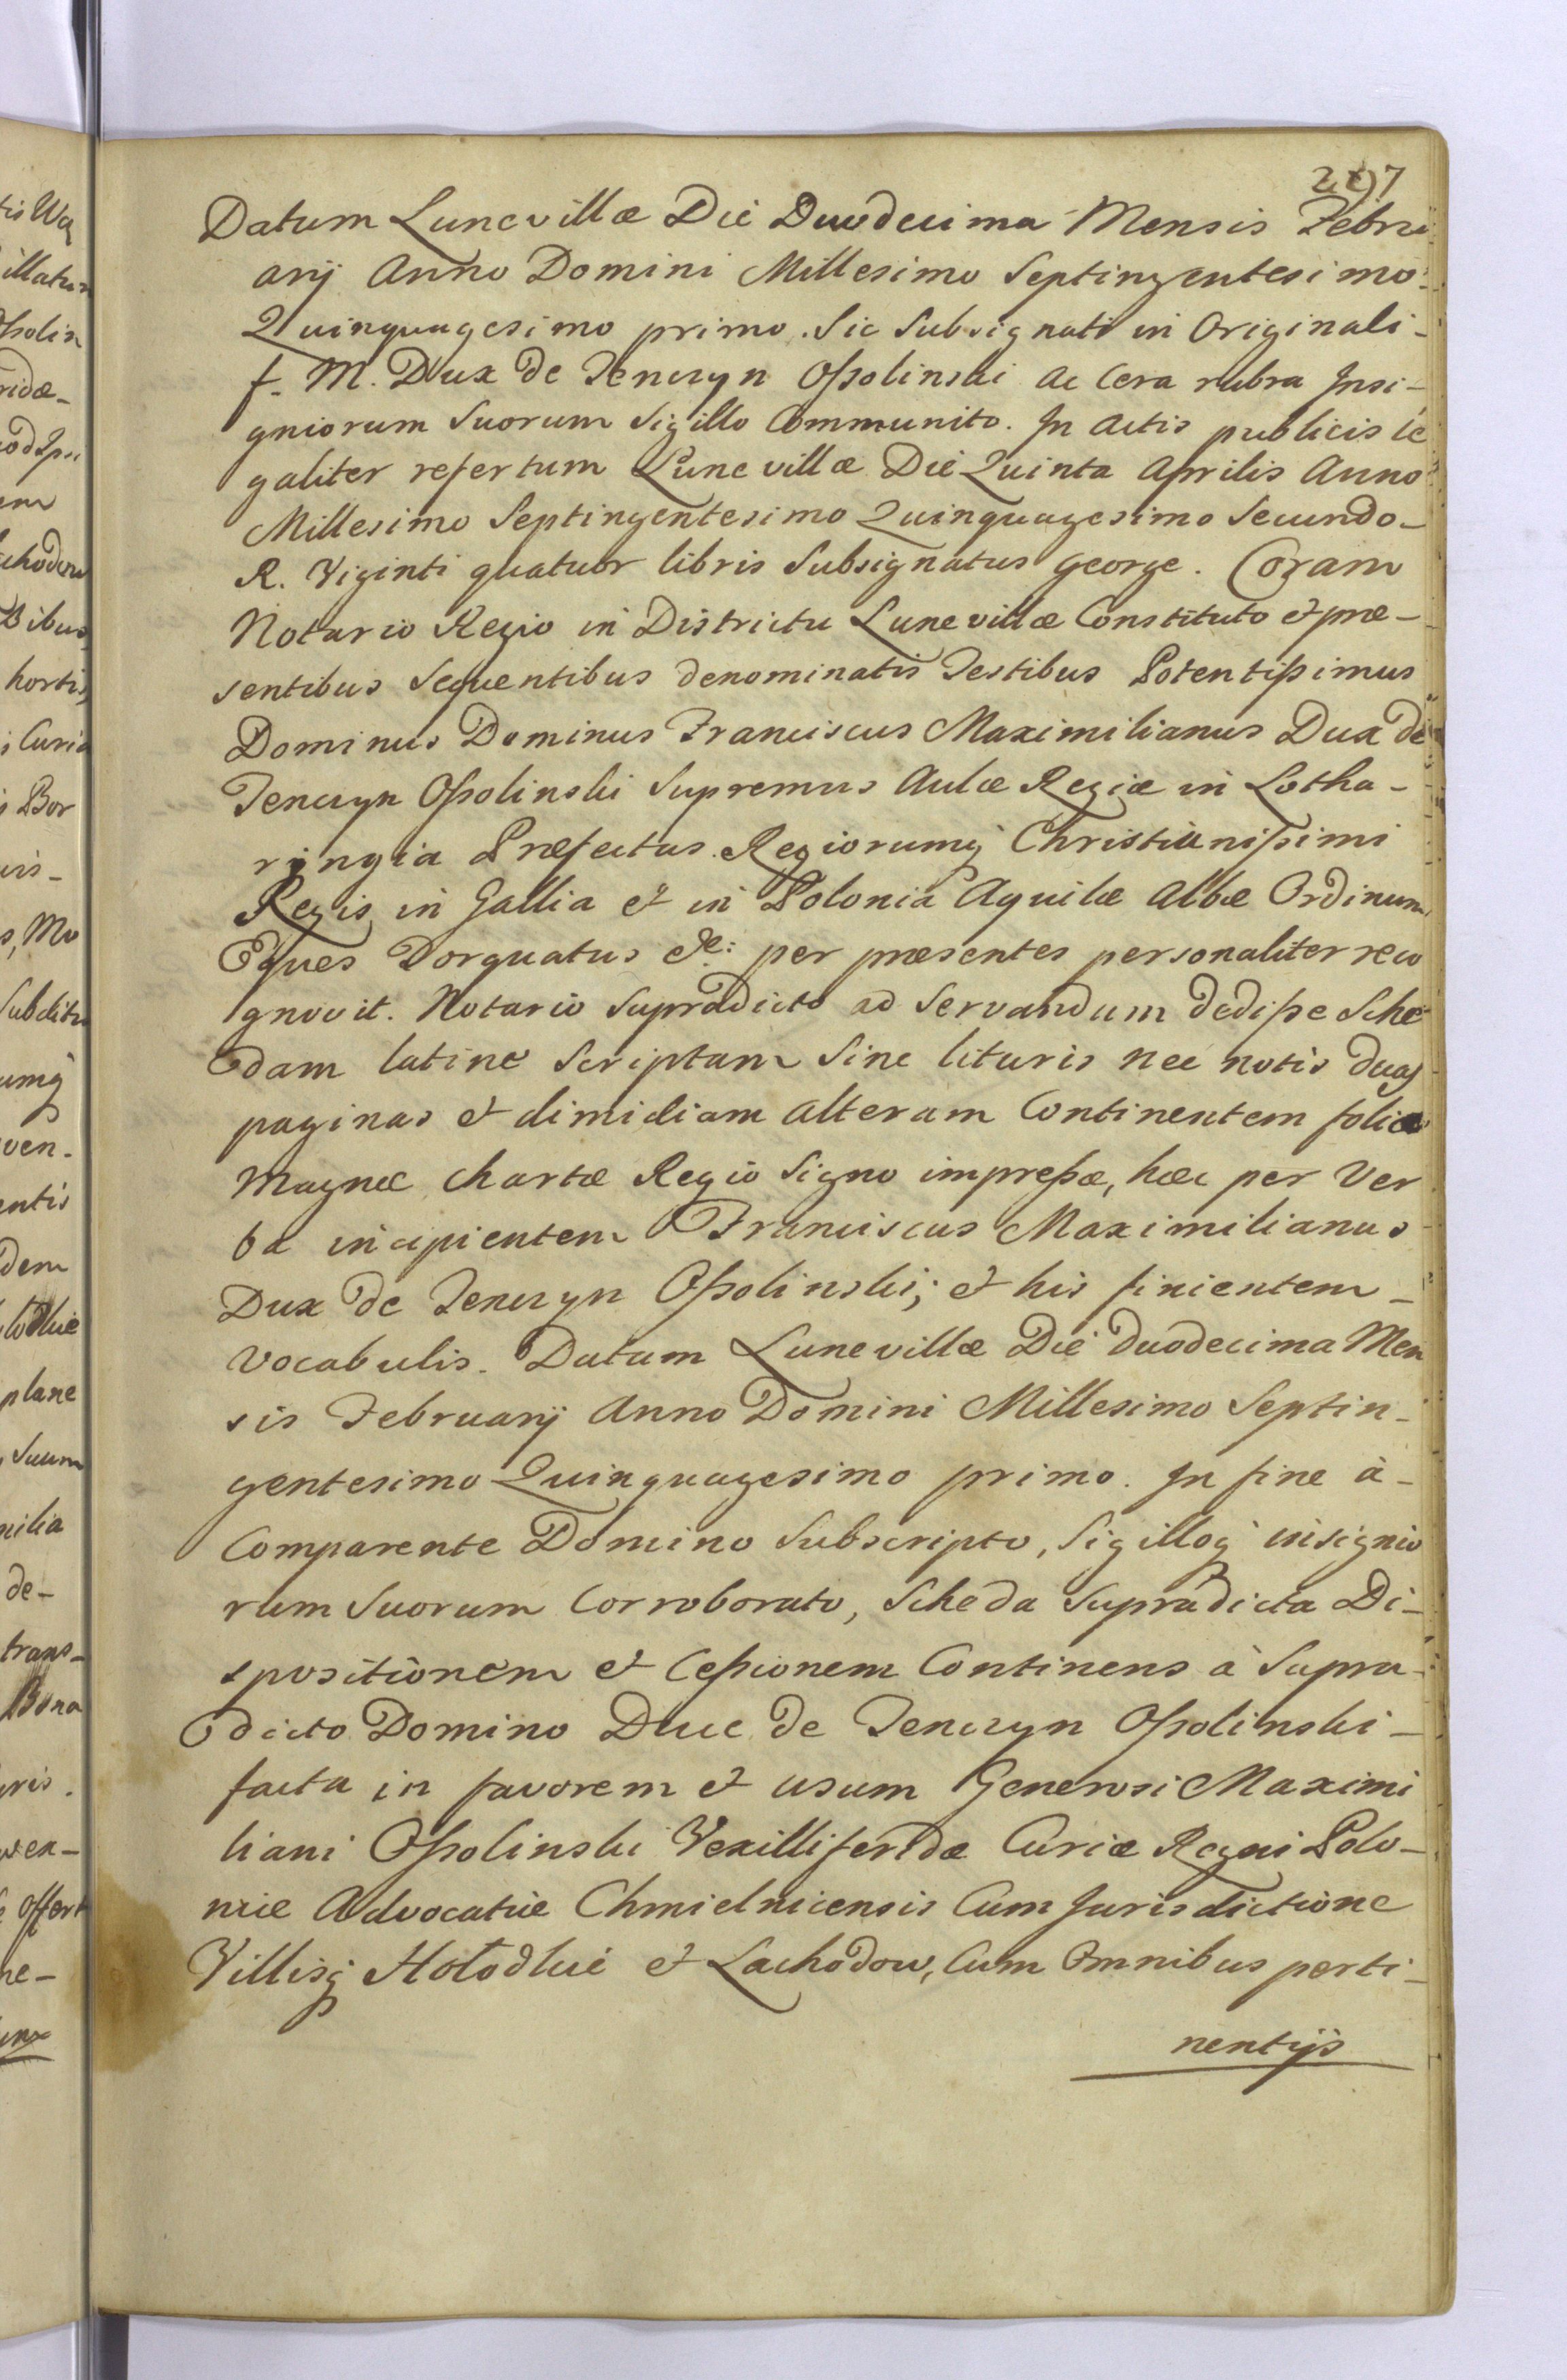 Datum Lunevillæ Die Duodecima Mensis Febru
arij Anno Domini Millesimo Septingentesimo
Quinquagesimo primo. Sic Subsignati in Originali -
f. M. Dux de Tenczyn Oſsolinski ac Cera rubra Insi-
gniorum Suorum Sigillo Communito. In Actis publicis le
galiter refertum Lunevillæ Die Quinta Aprilis Anno
Millesimo Septingentesimo Quinquagesimo Secundo -
R. Viginti quatuor libris Subsignatus George. Coram
Notario Regio in Districtu Lunevillæ Constituto et præ-
sentibus Sequentibus denominatis Testibus Potentiſsimus
Dominus Dominus Franciscus Maximilianus Dux de
Tenczyn Oſsolinski Supremus Aulæ Regiæ in Lotha-
ringia Præfectus. Regiorumq Christianiſsimi
Regis in Gallia et in Polonia Aquilæ Albæ Ordinum
Eques Torquatus &c: per præsentes personaliter reco
gnovit. Notario Supradicto ad Servandum dediſse Sche
dam latine Scriptam Sine lituris nec notis duas
paginas et dimidiam alteram Continentem foliæ
Magnæ Chartæ Regio Signo impreſsæ, hæc per Ver
ba incipientem Franciscus Maximilianus
Dux de Tenczyn Oſsolinski; et his finientem -
Vocabulis. Datum Lunevillæ Die duodecima Men
sis Februarij Anno Domini Millesimo Septin-
gentesimo Quinquagesimo primo. In fine à -
Comparente Domino Subscripto, Sigilloq insignio
rum Suorum Corroborato, Scheda Supradicta Di-
spositionem et Ceſsionem Continens à Supra-
dicto Domino Duce de Tenczyn Oſsolinski -
facta in favorem et usum Generosi Maximi
liani Oſsolinski Vexilliferidæ Curiæ Regni Polo-
niæ Advocatiæ Chmielnicensis Cum Jurisdictione
Villisq Hołodkie et Lachodow, Cum Omnibus perti-
nentijs